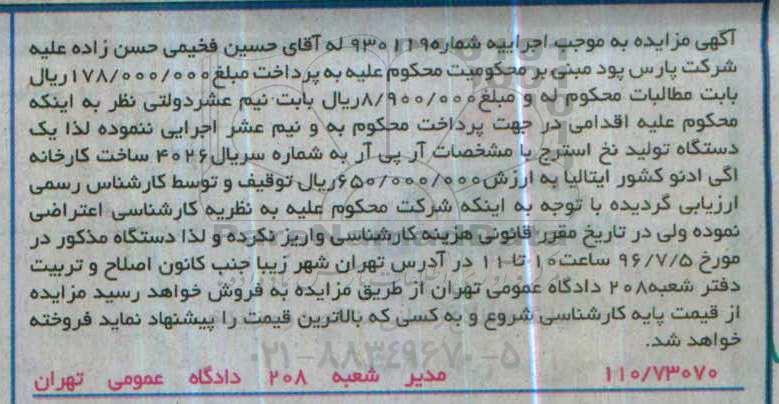 آگهی مزایده به موجب اجراییه شماره۹۳۰۱۱۹ له آقای حسین فخیمی حسن زاده علیه
شرکت پارس پود مبنی بر محکومیت محکوم علیه به پرداخت مبلغ۱۷۸/۰۰۰/۰۰۰ریال
بابت مطالبات محکوم له و مبلغ۸/۹۰۰/۰۰۰ریال بابت نیم عشردولتی نظر به اینکه
محکوم علیه اقدامی در جهت پرداخت محکوم به و نیم عشر اجرایی ننموده لذا یک
دستگاه تولید نخ استرچ با مشخصات آر پی آر به شماره سریال۴۰۲۶ ساخت کارخانه
اگی ادنو کشور ایتالیا به ارزش۶۵۰/۰۰۰/۰۰۰ریال توقیف و توسط کارشناس رسمی
ارزیابی گردیده با توجه به اینکه شرکت محکوم علیه به نظریه کارشناسی اعتراضی
نموده ولی در تاریخ مقرر قانونی هزینه کارشناسی واریز نکرده و لذا دستگاه مذکور در
مورخ ۹۶/۷/۵ ساعت۱۰ تا ۱۱ در آدرس تهران شهر زیبا جنب کانون اصلاح و تربیت
دفتر شعبه۲۰۸ دادگاه عمومی تهران از طریق مزایده به فروش خواهد رسید مزایده
از قیمت پایه کارشناسی شروع و به کسی که بالاترین قیمت را پیشنهاد نماید فروخته
خواهد شد.
۰۲۱-۸۸۳۴۹۶۷۰-۵
۱۱۰/۷۳۰۷۰ مدیر شعبه ۲۰۸ دادگاه عمومی تهران